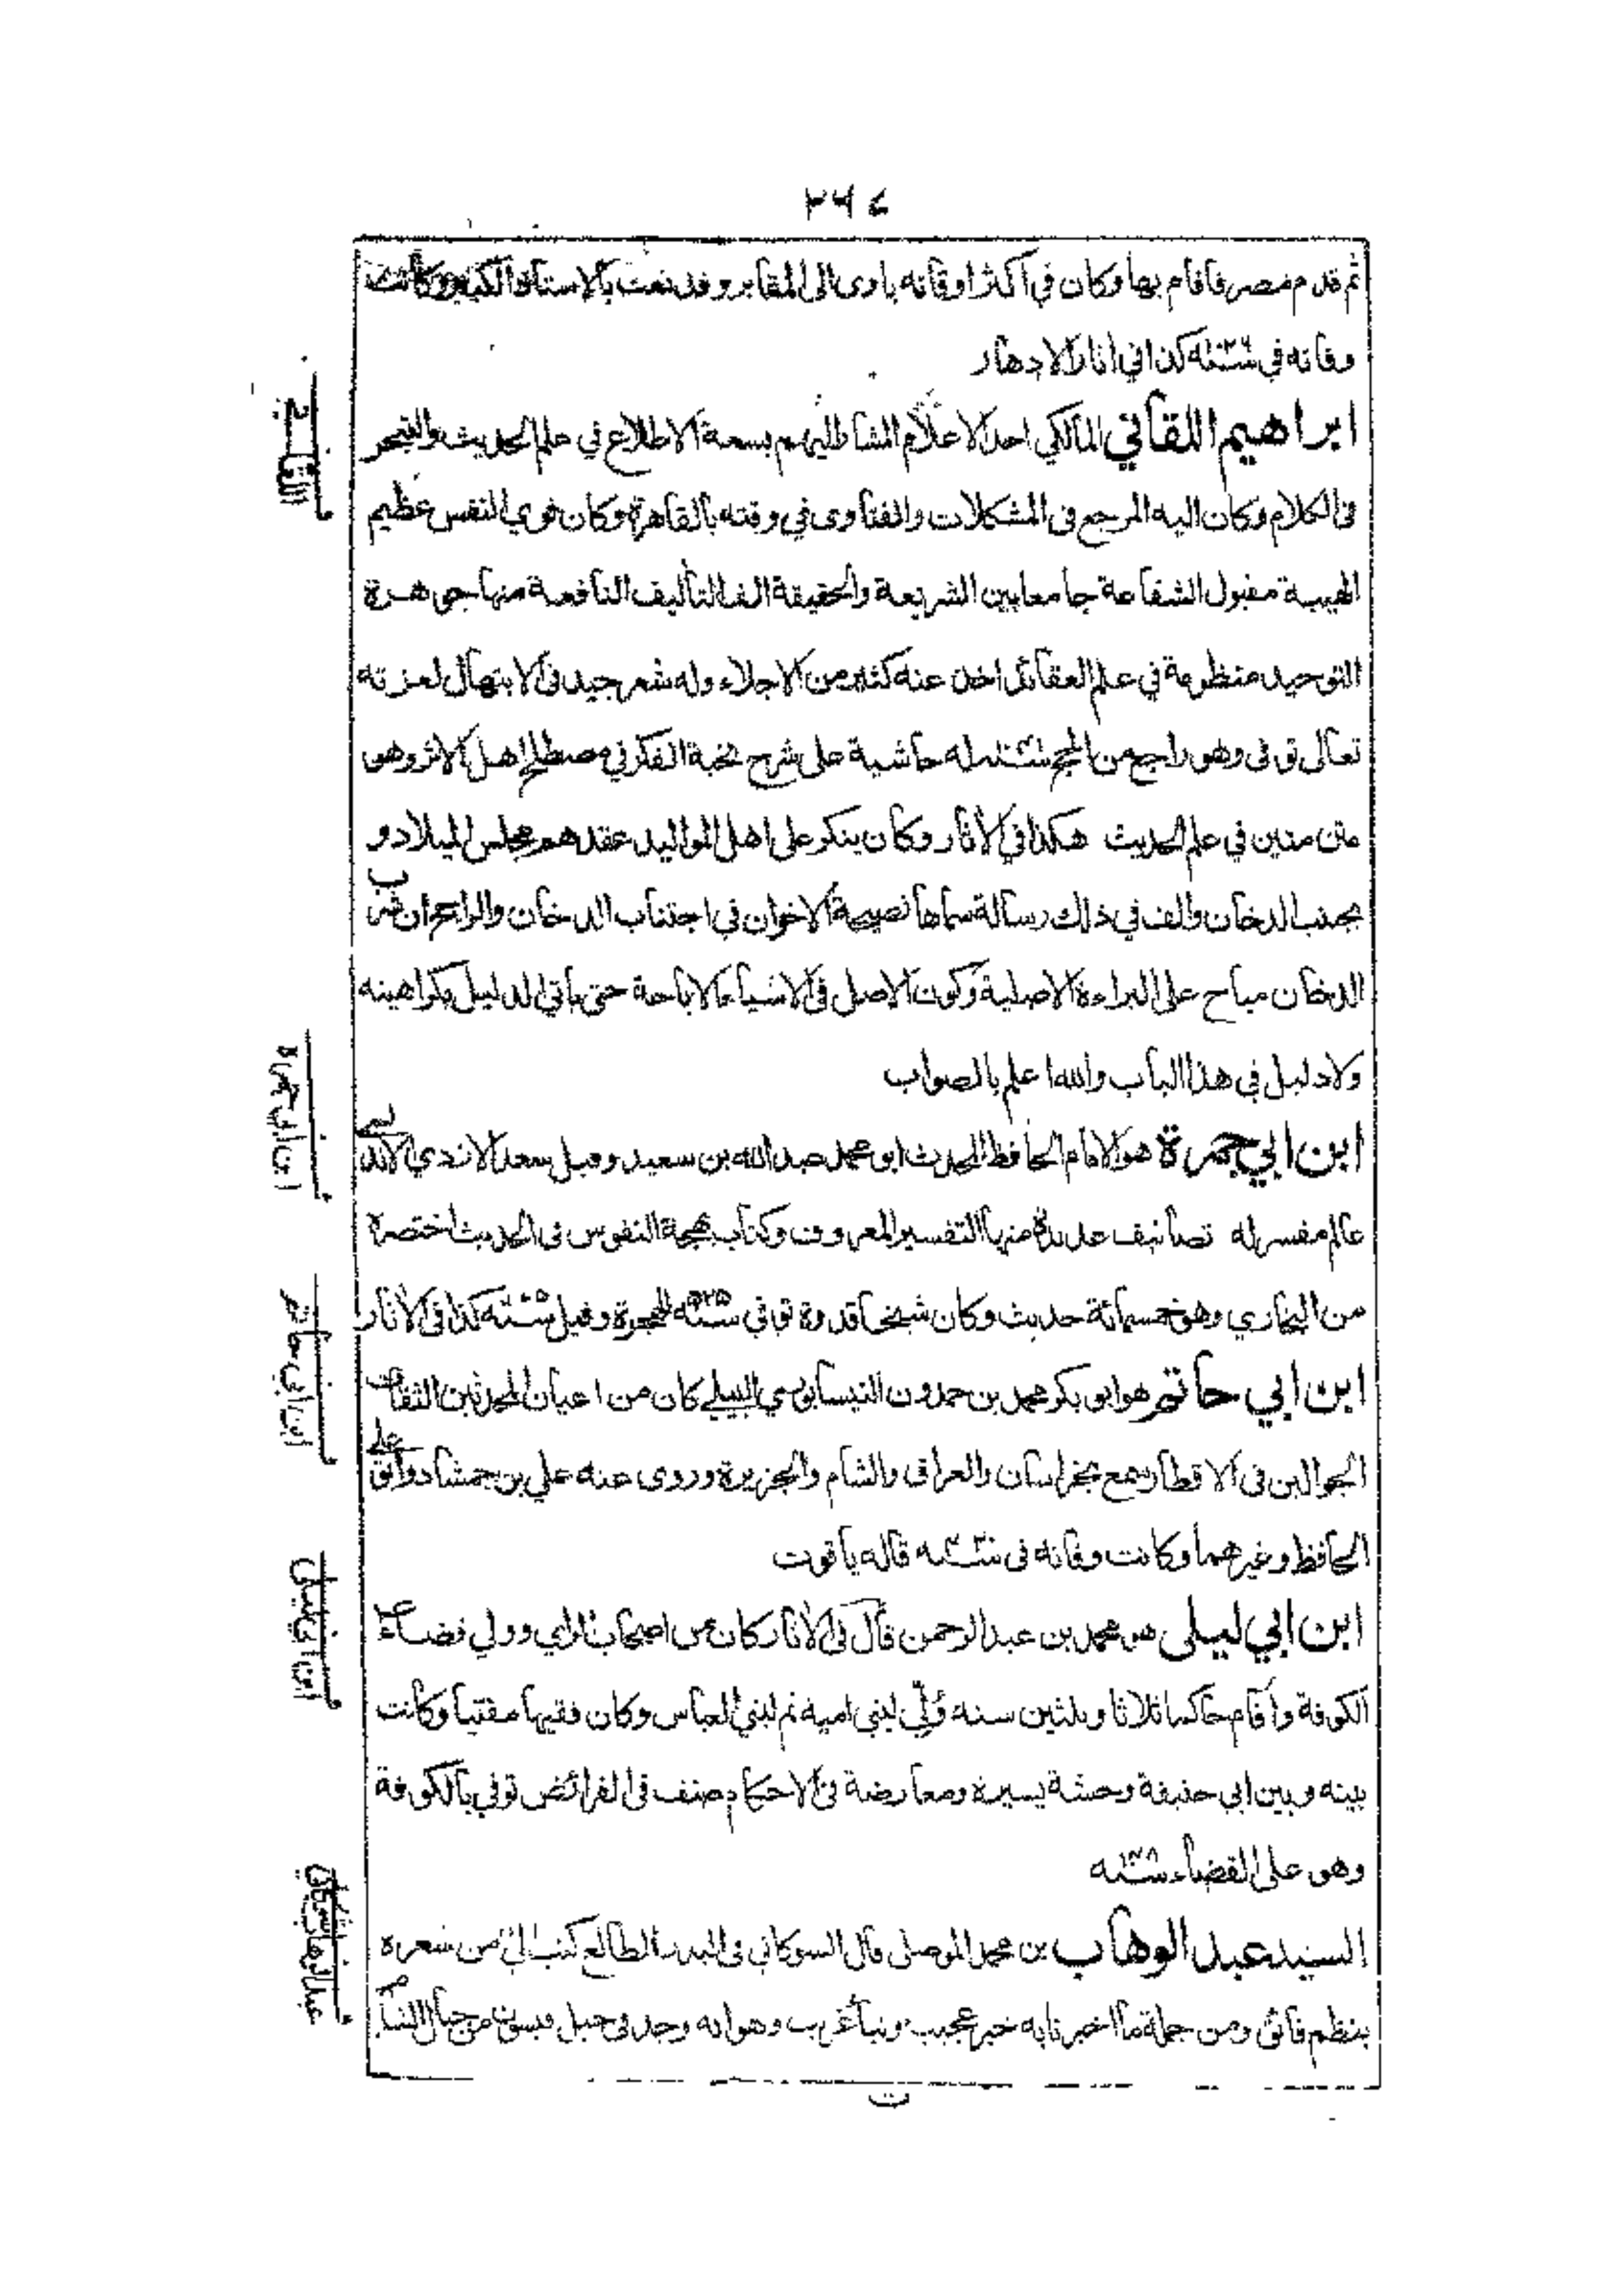 ٣٦٤
ثم قدم مصر فاقام بها وكان في اكثر اوقاته ياوى الى المقابر وقد نعت بالاستاذ الكبير وكانت
وفاته في سنة كذا في اثار الادهار
ابراهيم اللقاني المالكي احد الاعلام المشار اليهم بسعة الاطلاع في علم الحديث والتبحر
فى الكلام وكان اليه المرجع فى المشكلات والفتاوى في وقته بالقاهرة وكان قوي النفس عظيم
الهيبة مقبول الشفاعة جامعا بين الشريعة والحقيقة الف التأليف النافعة منها جوهرة
التوحيد منظومة في علم العقائد اخذ عنه كثير من الاجلاء وله شعر جيد فى الابتهال لعزته
تعالى توفى وهو راجع من الحج سنة له حاشية على شرح نخبة الفكر في مصطلح اهل الاثر وهو
متن متين في علم الحديث هكذا في الاثار وكان ينكر على اهل المواليد عقدهم مجلس الميلاد و
يجتنب الدخان والف في ذلك رسالة سماها نصيحة الاخوان في اجتناب الدخان والراجح ان شرب
الدخان مباح على البراءة الاصلية وكون الاصل فى الاشياء الاباحة حتى يأتي الدليل بكراهيته
ولا دليل في هذا الباب والله اعلم بالصواب
ابن ابي جمرة هو الامام الحافظ المحدث ابو محمد عبد الله بن سعيد وقيل سعد الازدي الاندلسي
عالم مفسر له تصانيف عديدة منها التفسير المعروف وكتاب بهجة النفوس فى الحديث اختصره
من البخاري وهو خمسمائة حديث وكان شيخا قدوة توفي سنة ٥٢٥ للهجرة وقيل سنة كذا فى الاثار
ابن ابي حاتم هو ابو بكر محمد بن حمدون النيسابوري البيلي كان من اعيان المحدثين الثقات
الجوالين فى الاقطار سمع بخراسان والعراق والشام والجزيرة وروى عنه علي بن جمشاد وابو علي
الحافظ وغيرهما وكانت وفاته فى سنة قاله ياقوت
ابن ابي ليلى هو محمد بن عبد الرحمن قال فى الاثار كان من اصحاب الراي وولي قضاء
الكوفة واقام حاكما ثلاثا وثلثين سنه وُلّي لبني اميه ثم لبني العباس وكان فقيها مفتيا وكانت
بينه وبين ابي حنيفة وحشة يسيرة ومعارضة فى الاحكام صنف فى الفرائض توفي بالكوفة
وهو على القضاء سنة ١٤٨
السيد عبد الوهاب بن محمد الموصلى قال الشوكاني فى البدر الطالع كتب اليّ من شعره
بنظم فائق ومن جملة ما اخبرنا به خبر عجيب ونبأ غريب وهو انه وجد فى جبل من جبال الشام
ابن ابي جمره
ابن ابي حاتم
ابن ابي ليلى